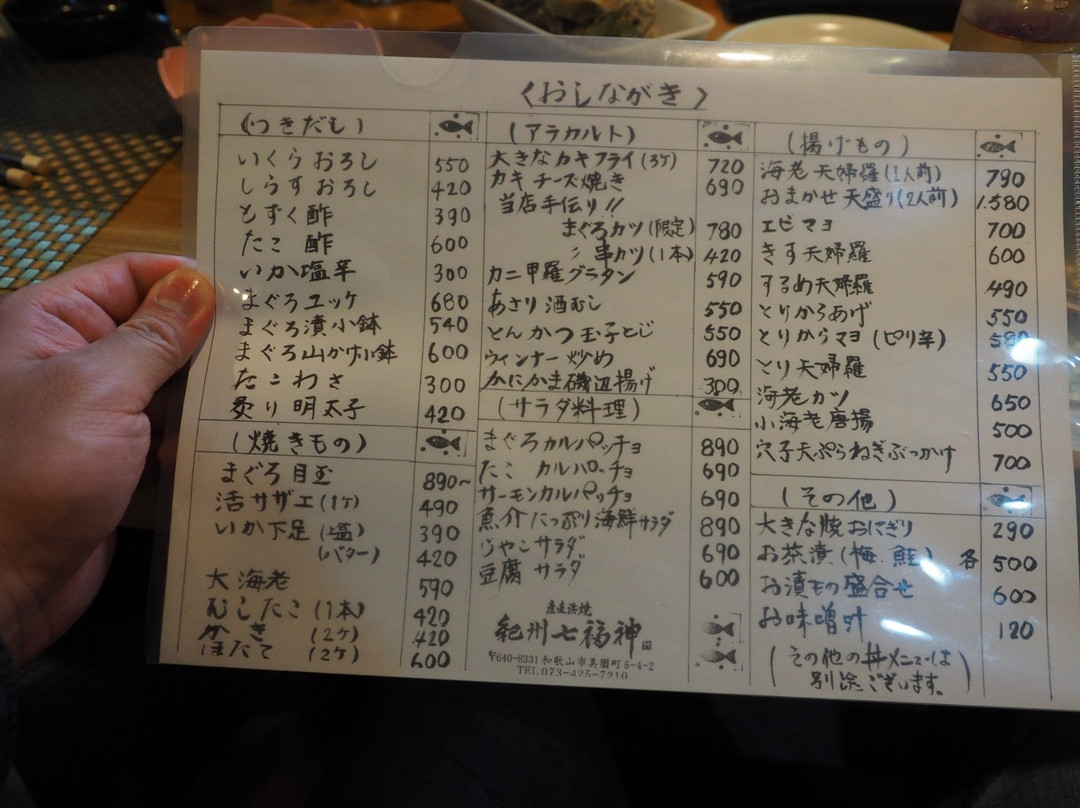 〈おしながき〉
(つきだし)
いくらおろし 550
しらすおろし 420
もずく酢 390
たこ酢 600
いか塩辛 300
まぐろユッケ 680
まぐろ漬小鉢 540
まぐろ山かけ小鉢 600
たこわさ 300
炙り明太子 420
(焼きもの)
まぐろ目玉 890~
活サザエ(1ヶ) 490
いか下足(塩) 390
(バター) 420
大海老 590
むしたこ(1本) 420
かき(2ケ) 420
ほたて(2ケ) 600
(アラカルト)
大きなカキフライ(3ケ) 720
カキチーズ焼き 690
当店手伝り!!
まぐろカツ(限定) 780
〃串カツ(1本) 420
カニ甲羅グラタン 590
あさり酒むし 550
とんかつ玉子とじ 550
ウィンナー炒め 690
かにかま磯辺揚げ 300
(サラダ料理)
まぐろカルパッチョ 890
たこカルパッチョ 690
サーモンカルパッチョ 690
魚介たっぷり海鮮サラダ 890
じゃこサラダ 690
豆腐サラダ 600
産直浜焼
紀州七福神
〒640-8331 和歌山市美園町5-4-2
TEL 073-425-7210
(揚げもの)
海老天婦羅(1人前) 790
おまかせ天盛り(2人前) 1.580
エビマヨ 700
きす天婦羅 600
するめ天婦羅 490
とりからあげ 550
とりからマヨ(ピリ辛) 580
とり天婦羅 550
海老カツ 650
小海老唐揚 500
穴子天ぷらねぎぶっかけ 700
(その他)
大きな焼おにぎり 290
お茶漬(梅.鮭) 各500
お漬もの盛合せ 600
お味噌汁 120
(その他の丼メニューは
別途ございます。)